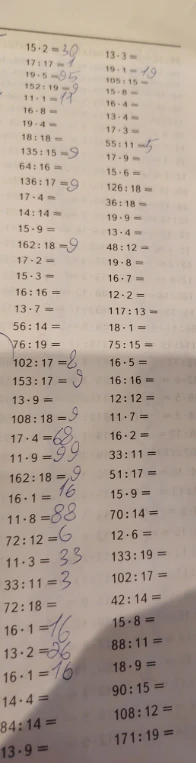 15·2=30
17:17=1
19·5=95
152:19=9
11·1=11
16·8=
19·4=
18:18=
135:15=9
64:16=
136:17=9
17·4=
14:14=
15·9=
162:18=9
17·2=
15·3=
16:16=
13·7=
56:14=
76:19=
102:17=8
153:17=9
13·9=
108:18=9
17·4=68
11·9=99
162:18=9
16·1=16
11·8=88
72:12=6
11·3=33
33:11=3
72:18=
16·1=16
13·2=26
16·1=16
14·4=
84:14=
13·9=
13·3=
19·1=19
105:15=
15·8=
16·4=
13·4=
17·3=
55:11=5
17·9=
15·6=
126:18=
36:18=
19·9=
13·4=
48:12=
19·8=
16·7=
12·2=
117:13=
18·1=
75:15=
16·5=
16:16=
12:12=
11·7=
16·2=
33:11=
51:17=
15·9=
70:14=
12·6=
133:19=
102:17=
42:14=
15·8=
88:11=
18·9=
90:15=
108:12=
171:19=